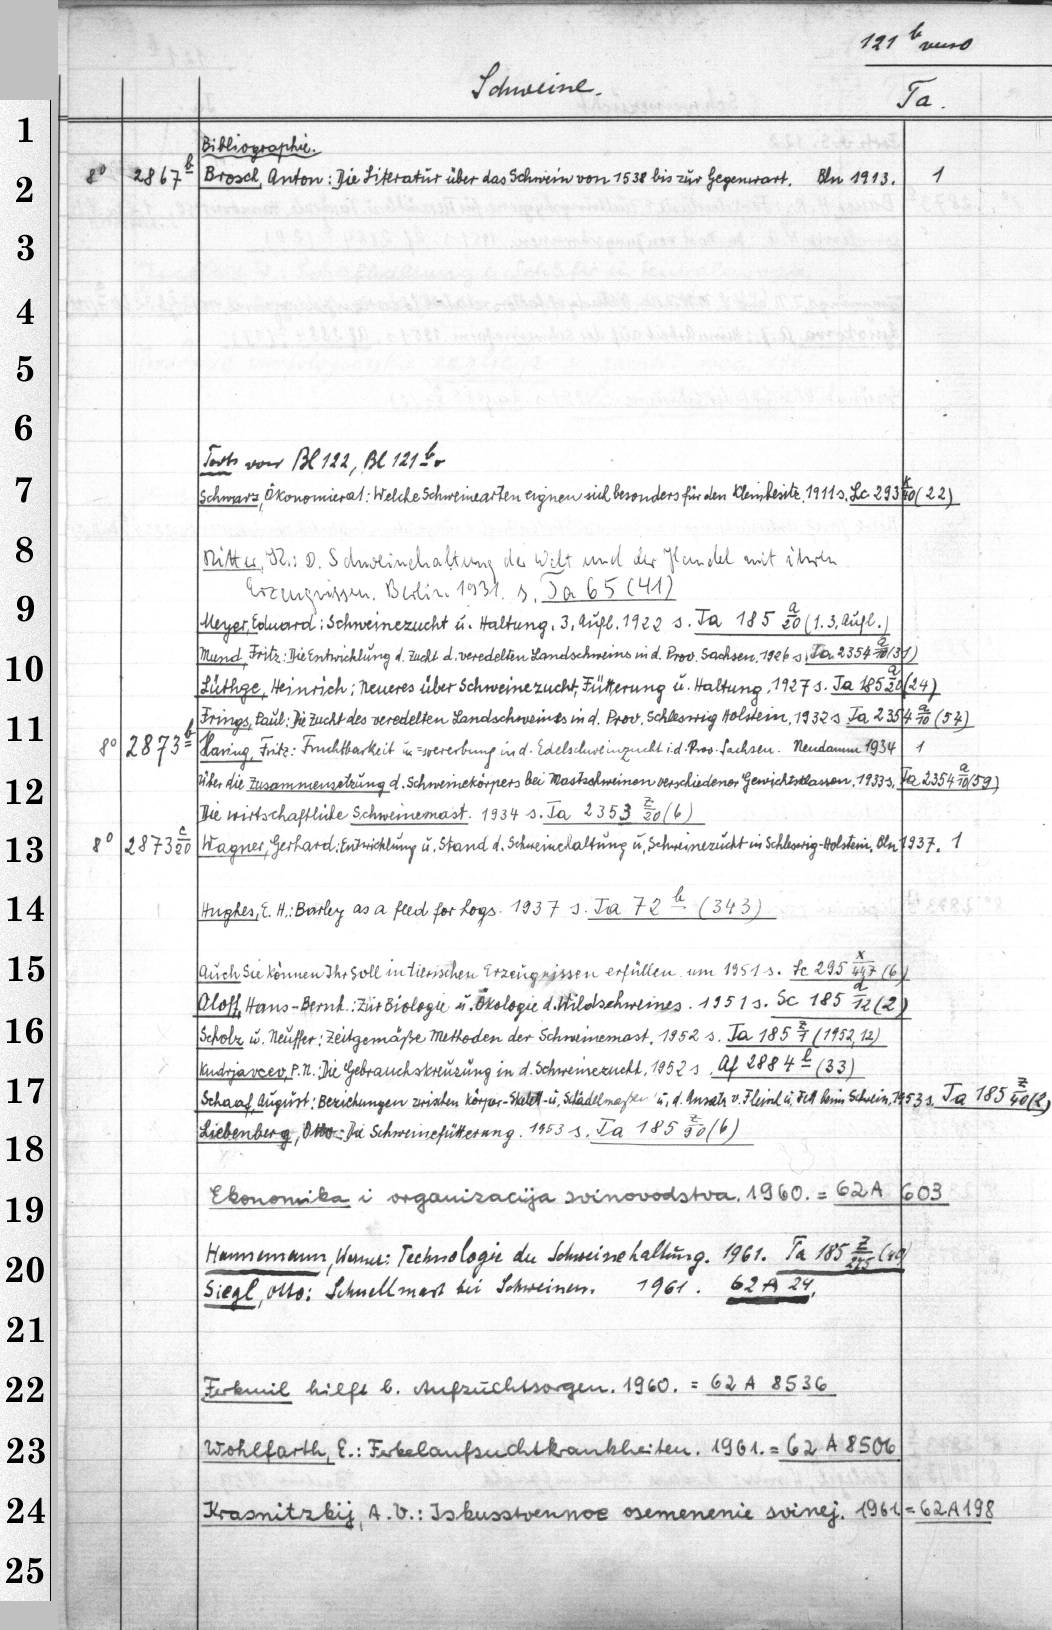 121 b verso
Schweine.
Ta.
1
Bibliographie.
2
8° 2867 b Brosch, Anton: Die Literatur über das Schwein von 1538 bis zur Gegenwart. Bln 1913. 1
3
4
5
6
Forts von Bl 122, Bl 121 b v
7
Schwarz, Ökonomierat: Welche Schweinearten eignen sich besonders für den Kleinbesitz. 1911 s. Lc 293 k/40 (22)
8
Ritter, K.: D. Schweinehaltung der Welt und der Handel mit ihren
Erzeugnissen. Berlin. 1931. s. Ta 65 (41)
9
Meyer, Eduard: Schweinezucht u. Haltung. 3. Aufl. 1922 s. Ta 185 a/20 (1. 3. Aufl.)
10
Mund, Fritz: Die Entwicklung d. Zucht d. veredelten Landschweins in d. Prov. Sachsen. 1926 s. Ta 2354 a/10 (31)
Lüthge, Heinrich: Neueres über Schweinezucht, Fütterung u. Haltung. 1927 s. Ta 185 a/20 (24)
11
Frings, Paul: Die Zucht des veredelten Landschweines in d. Prov. Schleswig Holstein, 1932 s Ta 2354 a/10 (54)
8° 2873 b Haring, Fritz: Fruchtbarkeit u. =vererbung in d. Edelschweinzucht i. d. Prov. Sachsen. Neudamm 1934 1
12
Über die Zusammensetzung d. Schweinekörpers bei Mastschweinen verschiedener Gewichtsklassen. 1933 s. Ta 2354 a/10 (59)
Die wirtschaftliche Schweinemast. 1934 s. Ta 2353 z/20 (6)
13
8° 2873 c/20 Wagner, Gerhard: Entwicklung u. Stand d. Schweinehaltung u. Schweinezucht in Schleswig-Holstein. Bln 1937. 1
14
Hughes, E. H.: Barley as a feed for hogs. 1937 s. Ta 72 b (343)
15
Auch Sie können Ihr Soll in tierischen Erzeugnissen erfüllen um 1951 s. Fc 295 x/447 (6)
Aloff, Hans-Bernh.: Zur Biologie u. Ökologie d. Wildschweines. 1951 s. Sc 185 d/12 (2)
16
Scholz u. Neuffer: Zeitgemäße Methoden der Schweinemast. 1952 s. Ta 185 z/7 (1952, 12)
Kudrjavcev, P. N.: Die Gebrauchskreuzung in d. Schweinezucht. 1952 s. Af 2884 b (33)
17
Schaaf, August: Beziehungen zwischen Körper-Skelet- u. Schädelmaßen u. d. Ansatz v. Fleisch u. Fett beim Schwein. 1953 s. Ta 185 z/40 (2)
Liebenberg, Otto: Die Schweinefütterung. 1953 s. Ta 185 z/90 (6)
18
Ekonomika i organizacija svinovodstva. 1960. = 62 A 603
19
Hannemann, Werner: Technologie der Schweinehaltung. 1961. Ta 185 z/275 (40)
20
Siegl, Otto: Schnellmast bei Schweinen. 1961. 62 A 24.
21
22
Ferkmil hilft b. Aufzuchtsorgen. 1960. = 62 A 8536
23
Wohlfarth, E.: Ferkelaufzuchtkrankheiten. 1961. = 62 A 8506
24
Krasnitzkij, A. V.: Iskusstvennoe osemenenie svinej. 1961 = 62 A 198
25